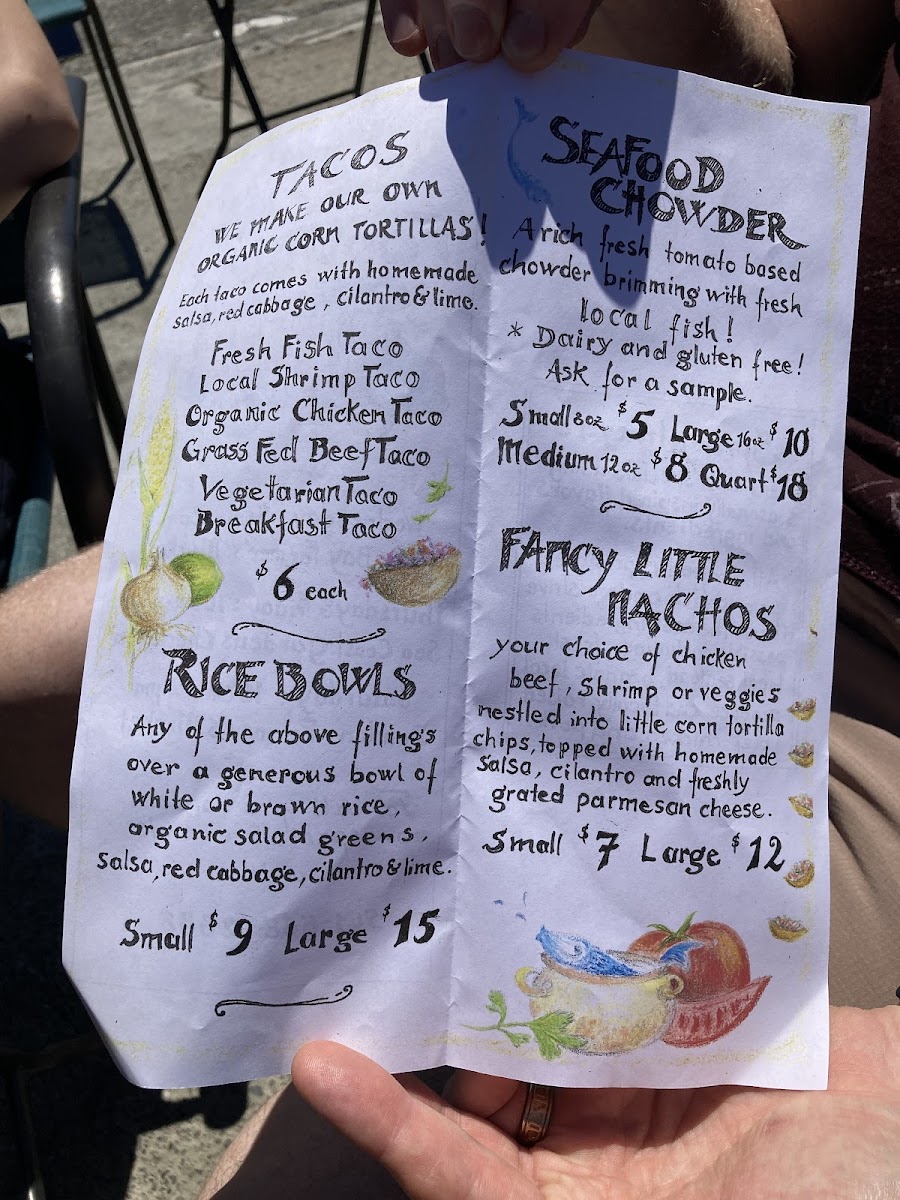 TACOS
WE MAKE OUR OWN
ORGANIC CORN TORTILLAS!
Each taco comes with homemade
salsa, red cabbage, cilantro & lime.
Fresh Fish Taco
Local Shrimp Taco
Organic Chicken Taco
Grass Fed Beef Taco
Vegetarian Taco
Breakfast Taco
$6 each
RICE BOWLS
Any of the above fillings
over a generous bowl of
white or brown rice,
organic salad greens,
salsa, red cabbage, cilantro & lime.
Small $9 Large $15
SEAFOOD
CHOWDER
A rich fresh tomato based
chowder brimming with fresh
local fish!
* Dairy and gluten free!
Ask for a sample.
Small 8oz $5 Large 16oz $10
Medium 12oz $8 Quart $18
FANCY LITTLE
NACHOS
your choice of chicken
beef, Shrimp or veggies
nestled into little corn tortilla
chips, topped with homemade
salsa, cilantro and freshly
grated parmesan cheese.
Small $7 Large $12